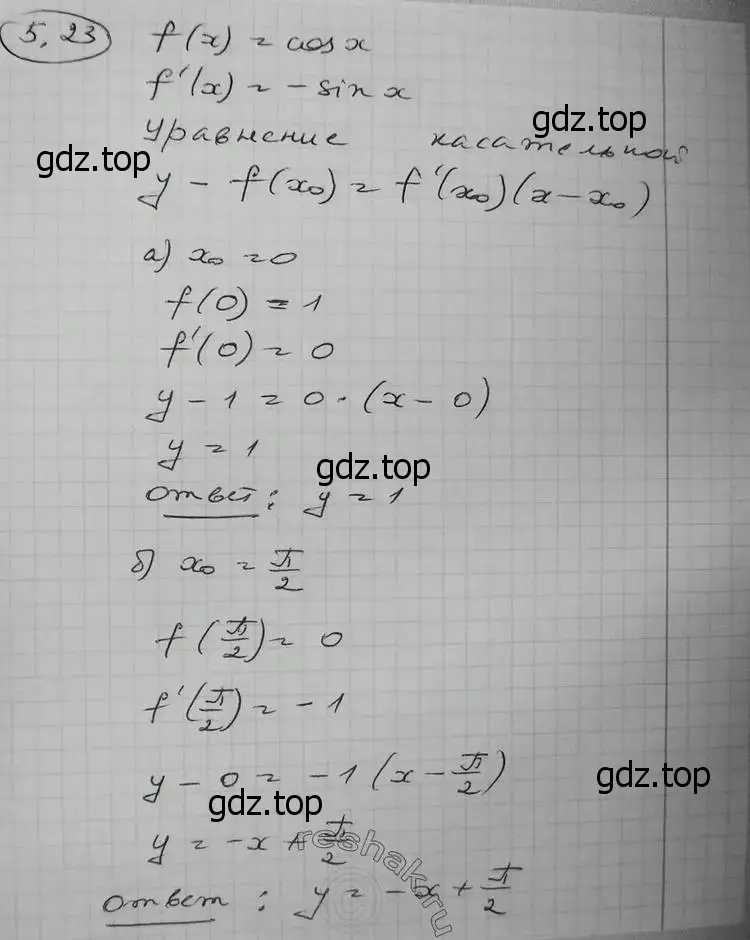 5,23 f(x) = cos x
f'(x) = - sin x
gdz.top
уравнение касательной
gdz.top
y - f(x₀) = f'(x₀)(x - x₀)
а) x₀ = 0
f(0) = 1
f'(0) = 0
y - 1 = 0 · (x - 0)
y = 1
gdz.top
Ответ: y = 1
б) x₀ = π/2
f(π/2) = 0
f'(π/2) = -1
y - 0 = -1 (x - π/2)
gdz.top
gdz.top
y = -x + π/2
reshak.ru
Ответ: y = -x + π/2